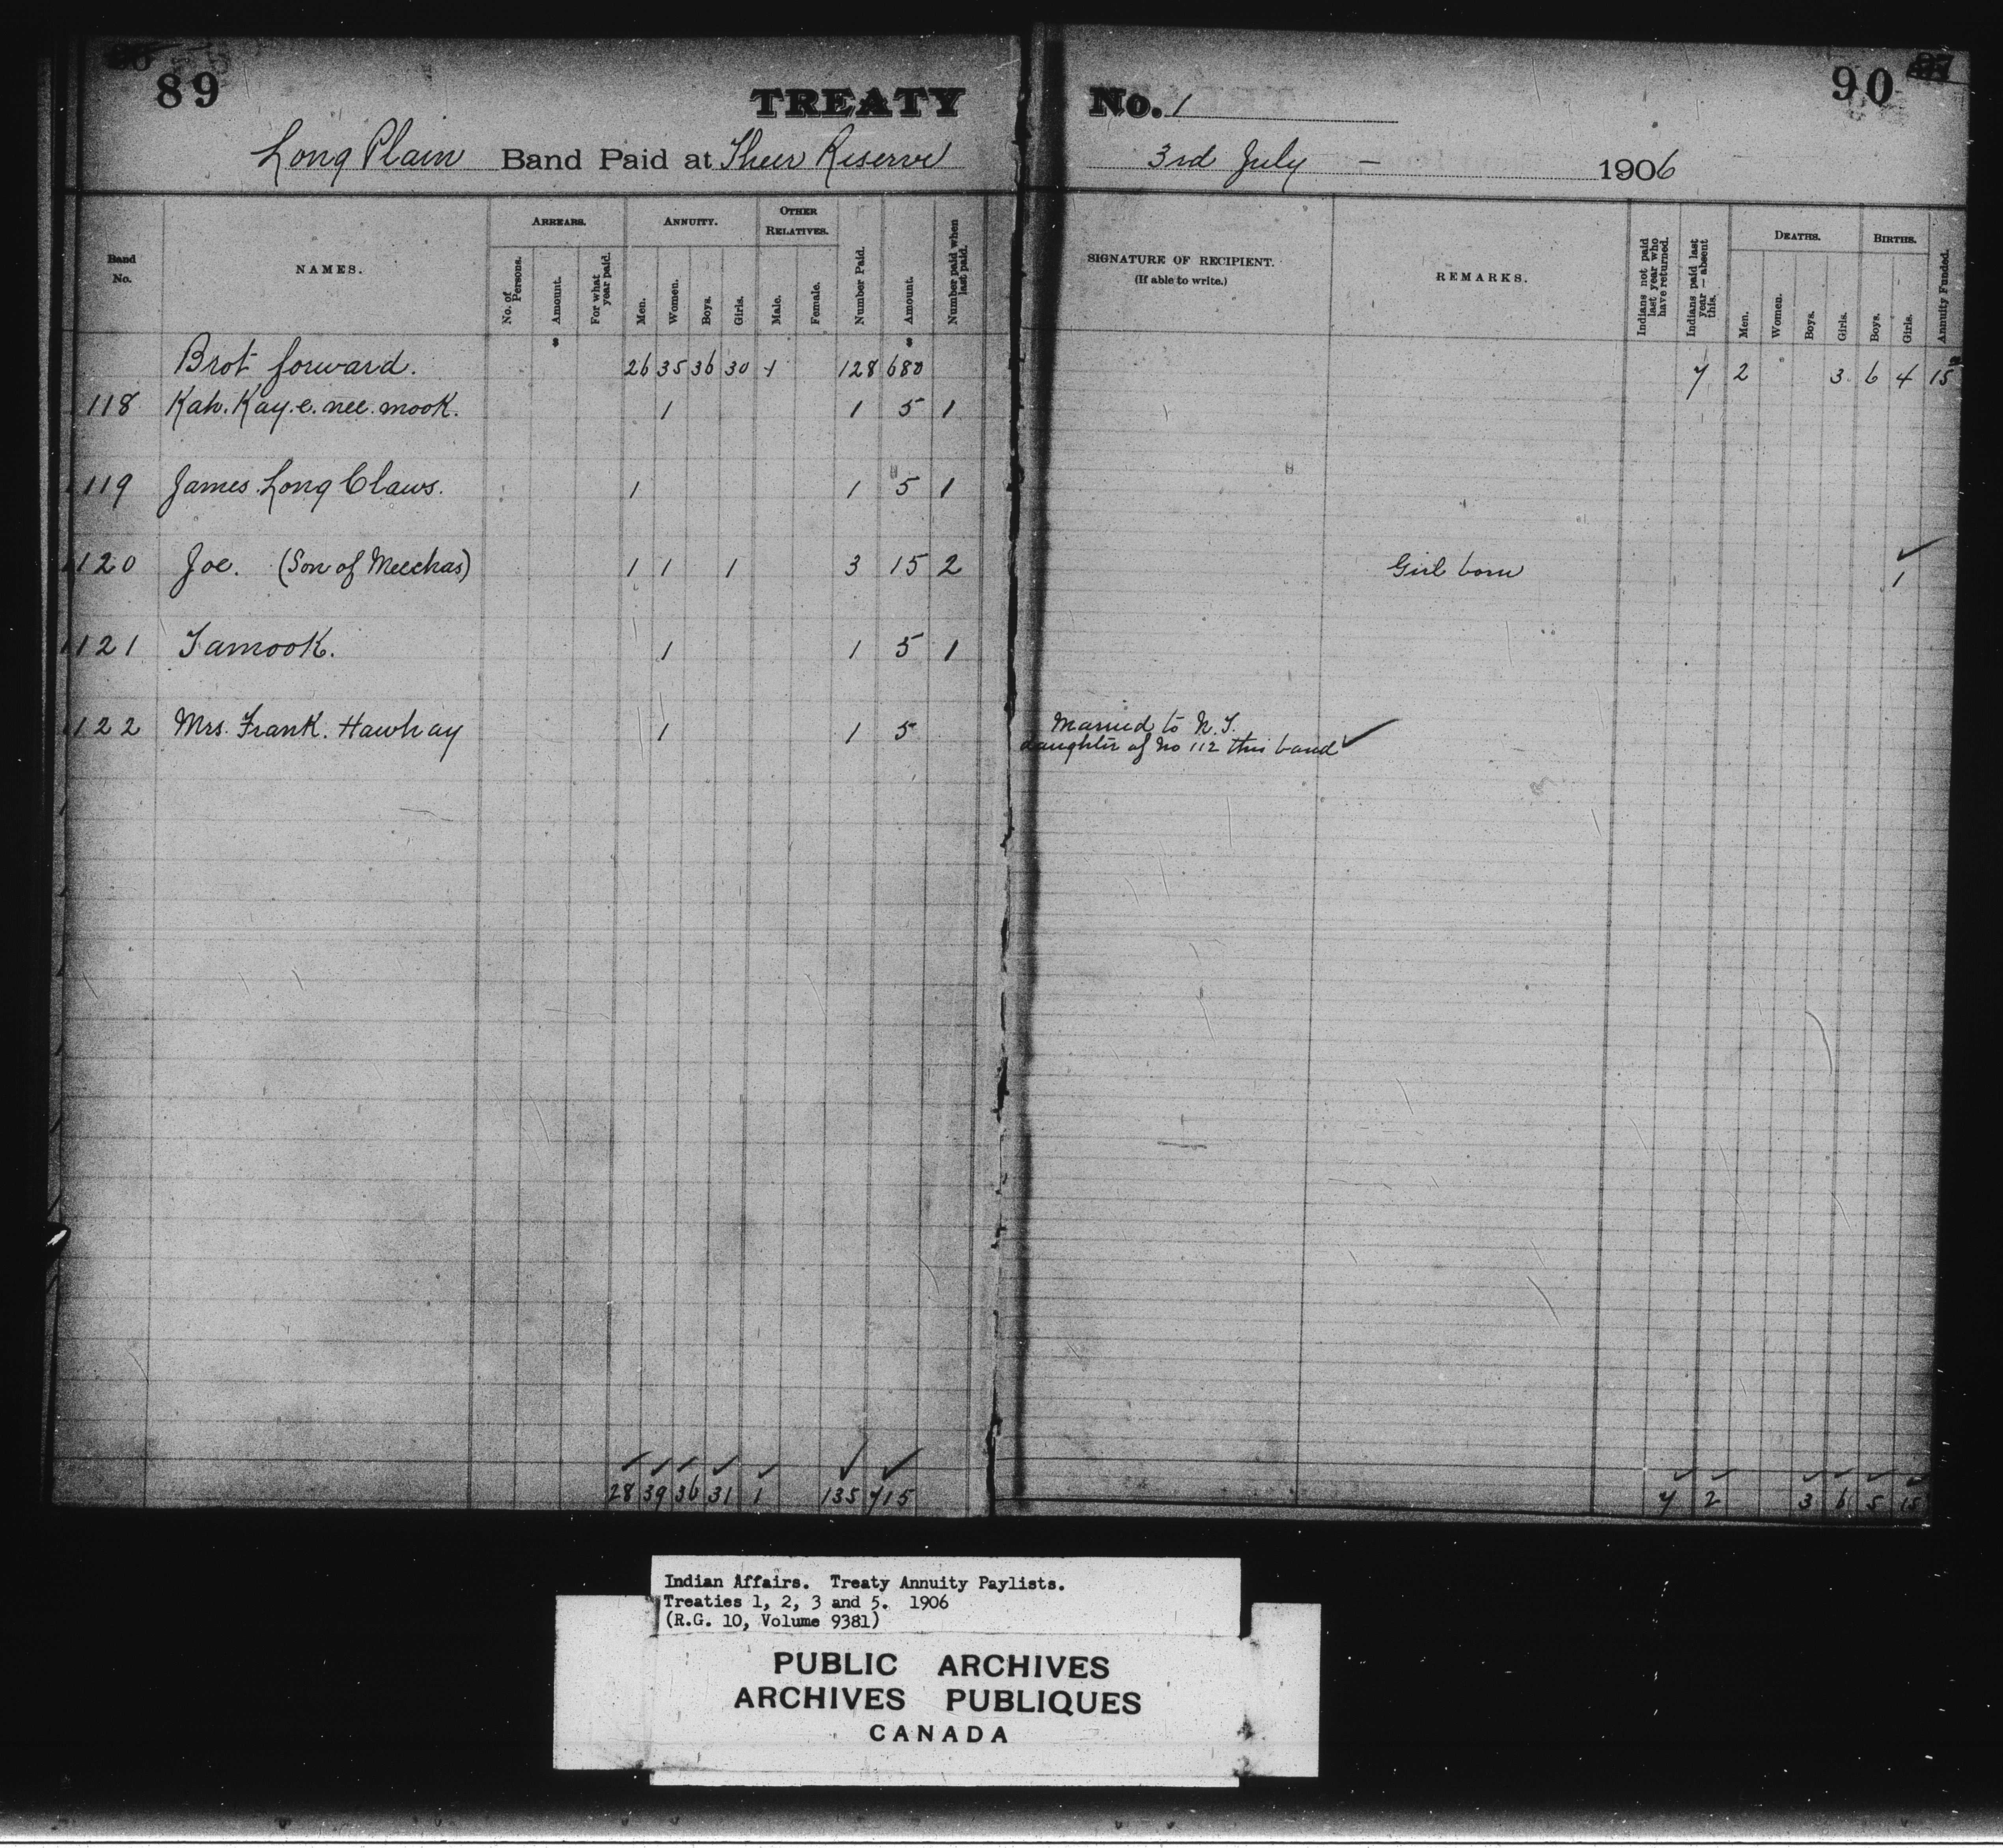 89 TREATY No. 1 90
Long Plain Band Paid at Their Reserve 3rd July - 1906
Band No. NAMES. ARREARS. No. of Persons. Amount. For what year paid. ANNUITY. Men. Women. Boys. Girls. OTHER RELATIVES. Male. Female. Number Paid. Amount. Number paid when last paid. SIGNATURE OF RECIPIENT. (If able to write.) REMARKS. Indians not paid last year who have returned. Indians paid last year—absent this. DEATHS. Men. Women. Boys. Girls. BIRTHS. Boys. Girls. Annuity Funded.
Brot forward. 26 35 36 30 1 128 680 7 2 3 6 4 15
118 Kah. Kay. e. nee. mook. 1 1 5 1
119 James Long Claws. 1 1 5 1
120 Joe. (Son of Meechas) 1 1 1 3 15 2 Girl born 1
121 Tamook. 1 1 5 1
122 Mrs. Frank. Hawhay 1 1 5 Married to N. T.
daughter of No 112 this band
28 39 36 31 1 135 715 7 2 3 6 5 15
Indian Affairs. Treaty Annuity Paylists.
Treaties 1, 2, 3 and 5. 1906
(R.G. 10, Volume 9381)
PUBLIC ARCHIVES
ARCHIVES PUBLIQUES
CANADA